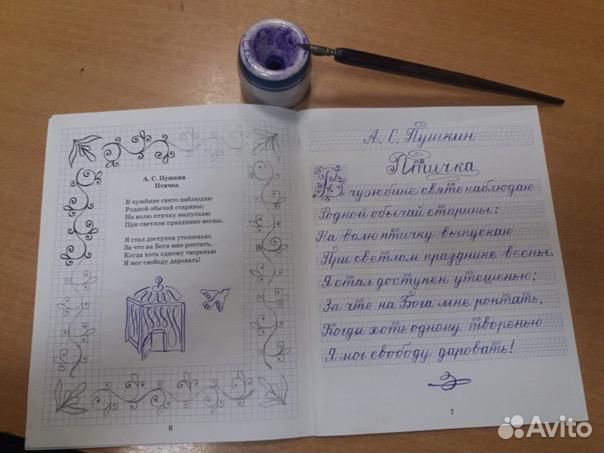 А. С. Пушкин
Птичка
В чужбине свято наблюдаю
Родной обычай старины:
На волю птичку выпускаю
При светлом празднике весны.
Я стал доступен утешенью;
За что на Бога мне роптать,
Когда хоть одному творенью
Я мог свободу даровать!
6
А. С. Пушкин
Птичка
В чужбине свято наблюдаю
Родной обычай старины:
На волю птичку выпускаю
При светлом празднике весны.
Я стал доступен утешенью;
За что на Бога мне роптать,
Когда хоть одному творенью
Я мог свободу даровать!
7
Avito